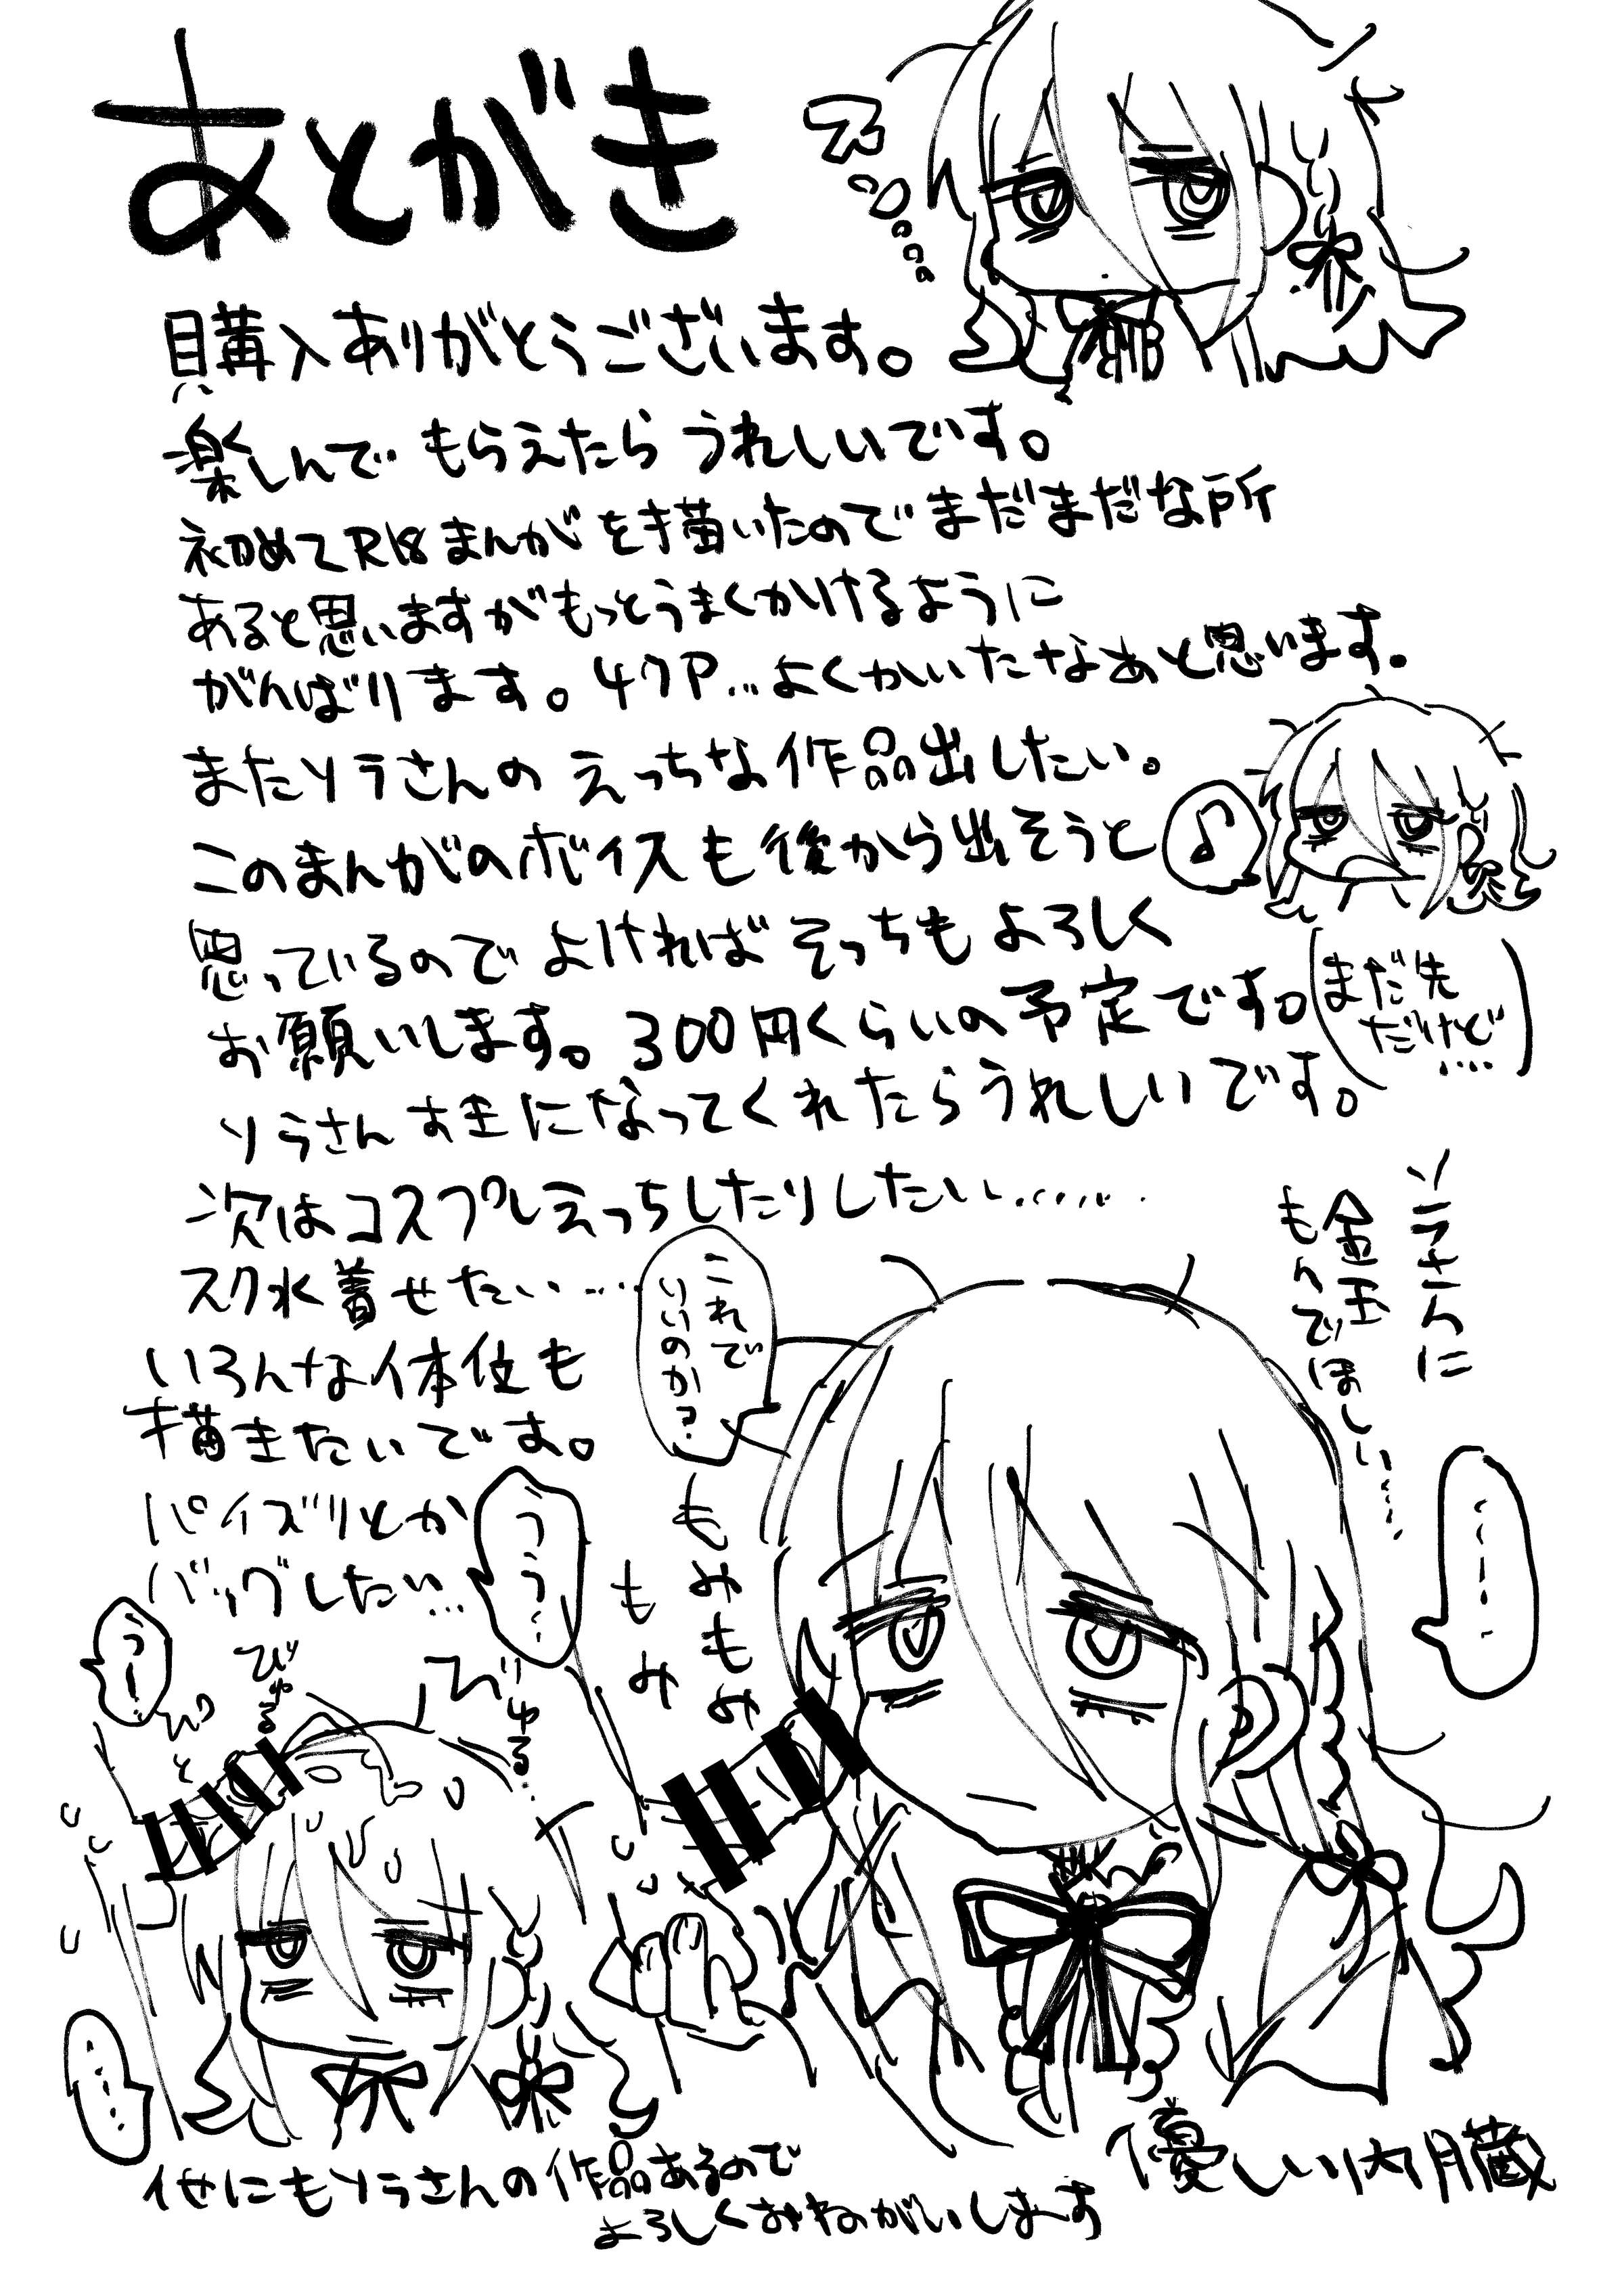 あとがき
購入ありがとうございます。
楽しんでもらえたらうれしいです。
初めてR18まんがを描いたのでまだまだな所
あると思いますがもっとうまくかけるように
がんばります。47P…よくかいたなあと思います。
またソラさんのえっちな作品出したい。
このまんがのボイスも後から出そうと
♪
思っているのでよければそっちもよろしく
お願いします。300円くらいの予定です。
(まだ先
だけど…)
ソラさんすきになってくれたらうれしいです。
次はコスプレえっちしたりしたい……
スク水着せたい…
いろんな体位も
描きたいです。
パイズリとか
バックしたい…
ソラさんに
金玉
もんでほしい……
これで
いいのか?
……
もみもみ
もみ
うう…
うー!
びゅる
びゅる…
……
他にもソラさんの作品あるので
よろしくおねがいします
優しい内臓